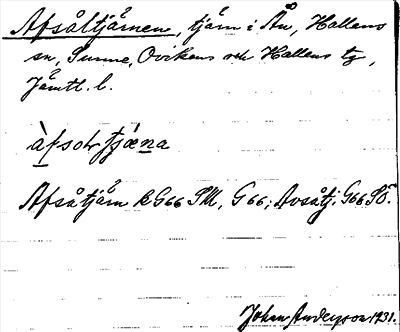 Afsåltjärnen, tjärn i Ån, Hallens
sn, Sunne, Ovikens och Hallens tg,
Jämtl. l.
àfsoltjæ̀na
Afsåtjärn k G66 SM, G66; Avsåtj. G66 SÖ.
Johan Anderson 1931.